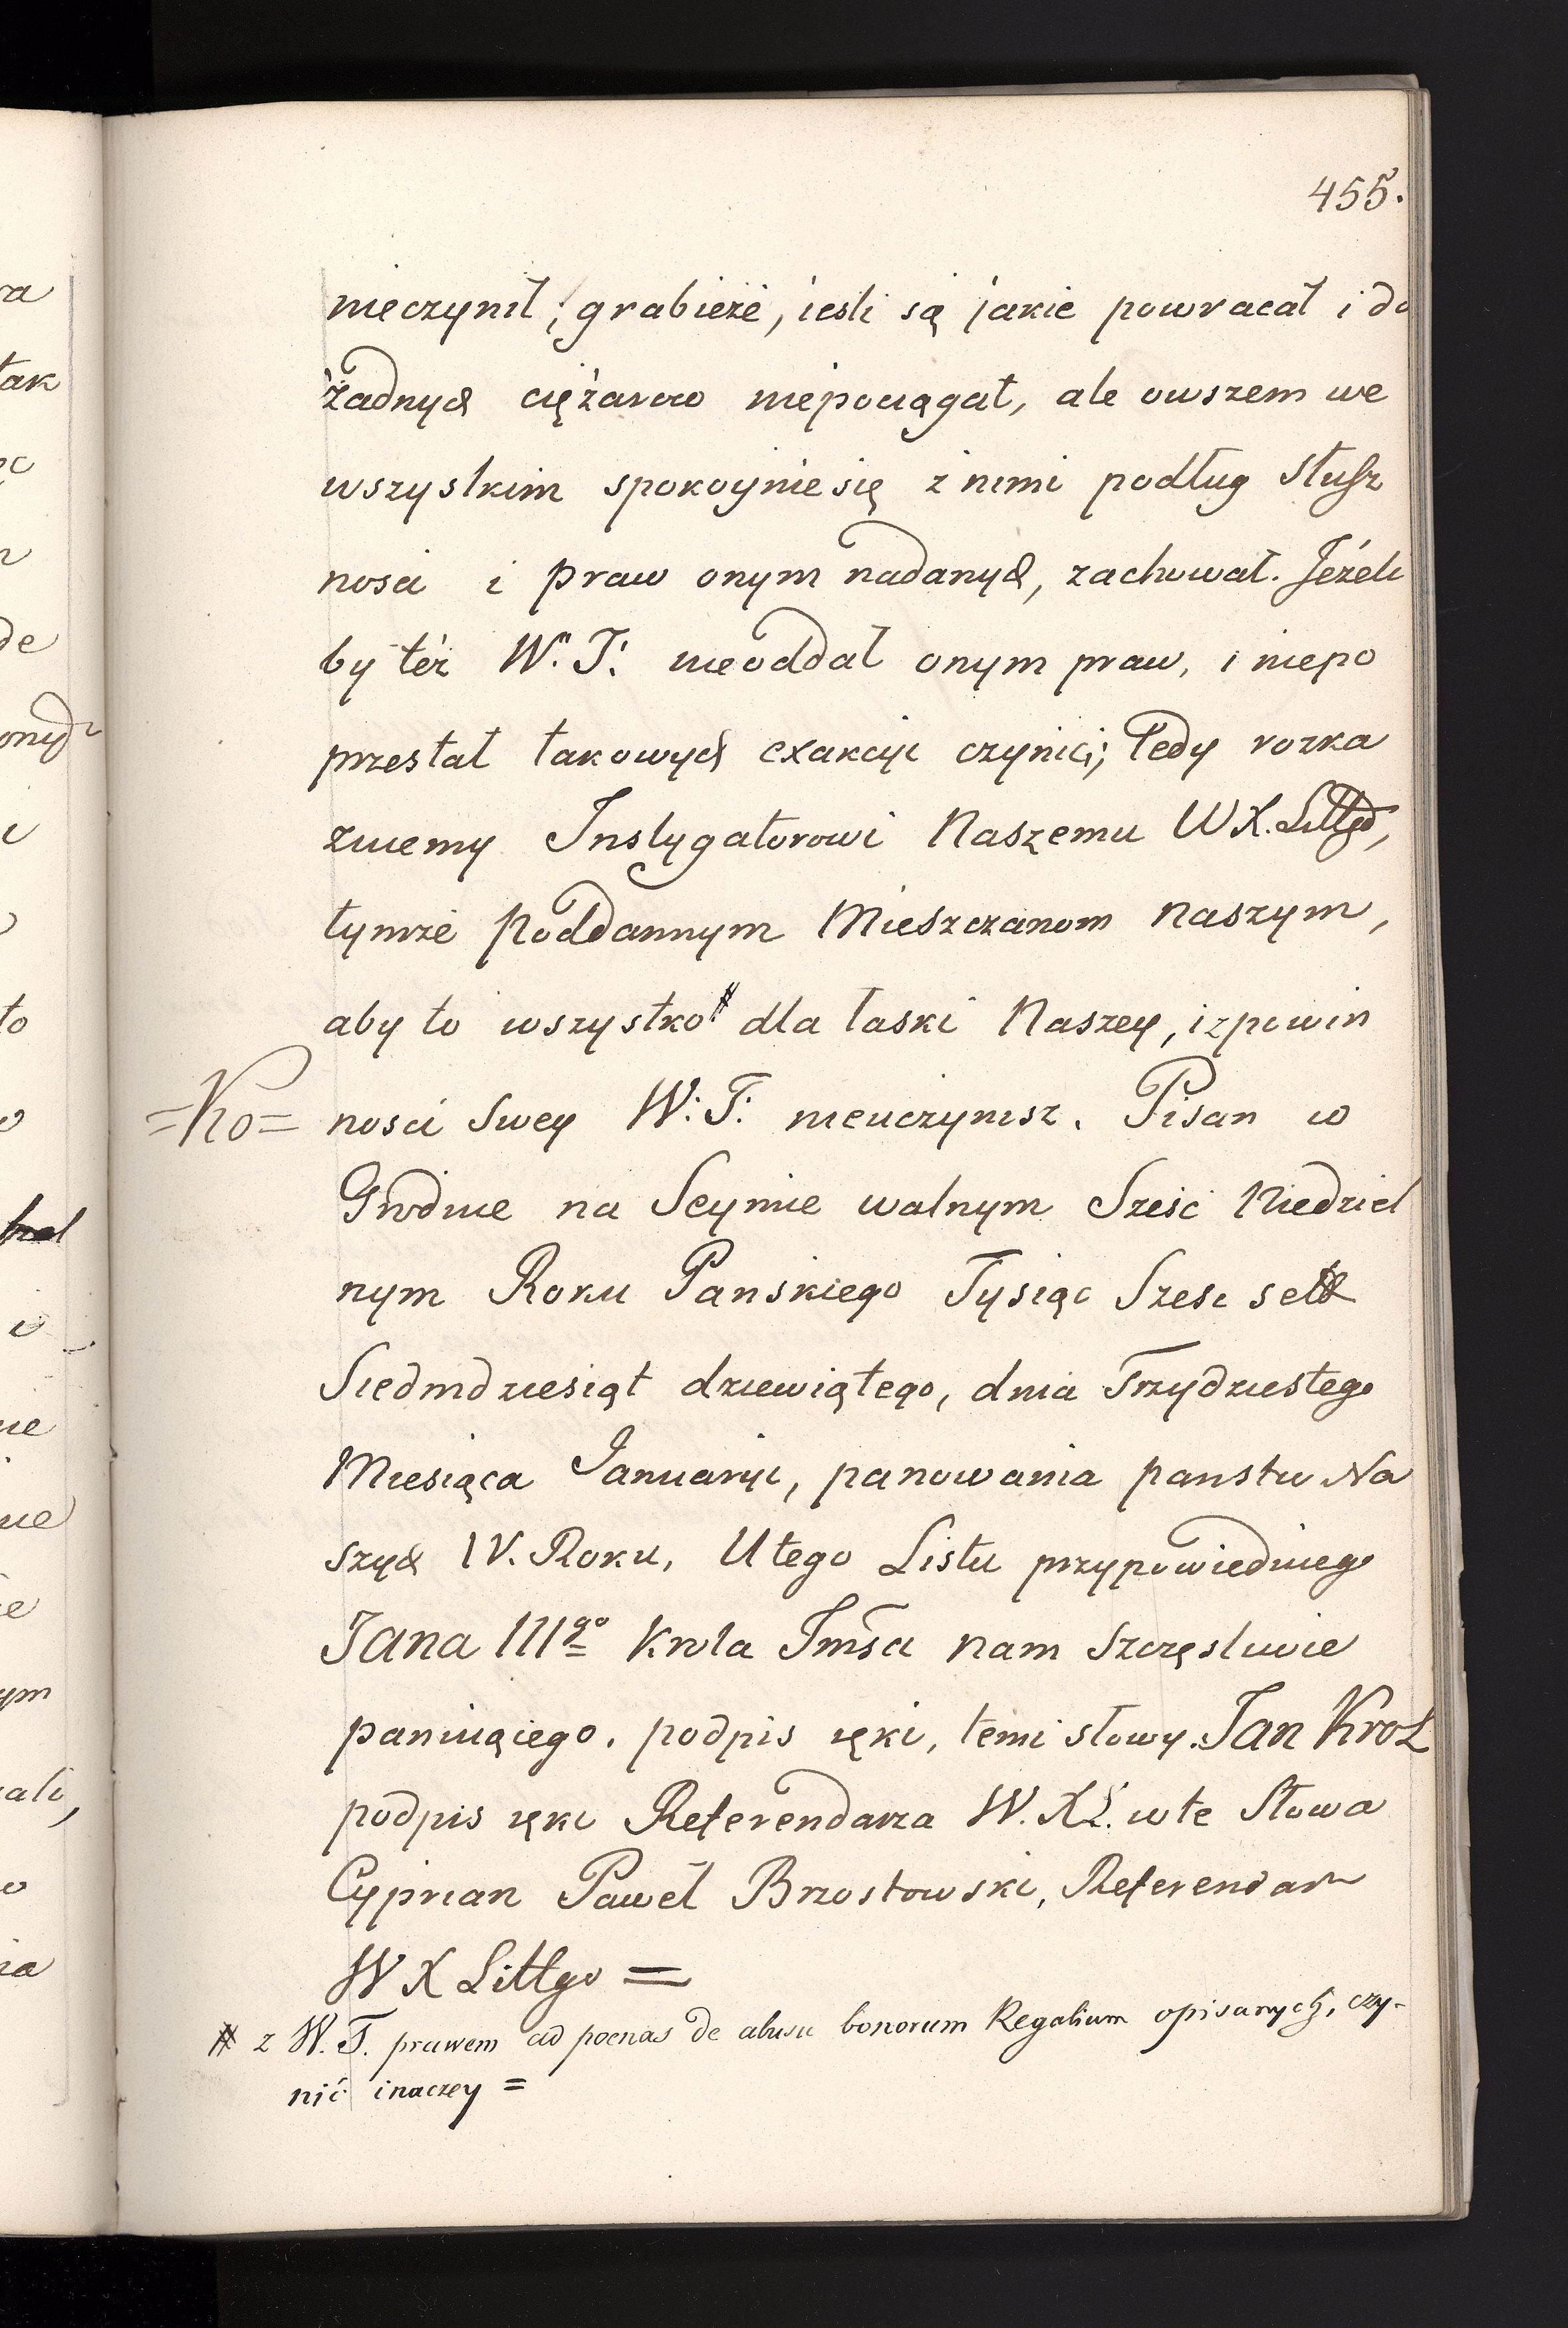 455.
nieczynił; grabieże, iesli są jakie powracał i do
żadnych ciężarow niepociągał, ale owszem we
wszystkim spokoynie się z nimi podług Słusz
nosci i praw onym nadanych, zachował. Jeżeli
by też W. T. nieoddał onym praw, i niepo
przestał takowych exakcyi czynić; Tedy rozka
zuiemy Instygatorowi Naszemu W X. Littgo,
tymże Poddannym Mieszczanom Naszym,
aby to wszystko # dla łaski Naszey, i z powin
=Ko= nosci Swey W: T: nieuczynisz. Pisan w
Grodnie na Seymie walnym Sześć Niedziel
nym Roku Panskiego Tysiąc Szesc set
Siedmdziesiąt dziewiątego, dnia Trzydziestego
Miesiąca Januaryi, panowania panstw Na
szych IV. Roku, U tego Listu przypowiedniego
Jana IIIgo Krola Jmsci nam szczęsliwie
panuiąiego. podpis ręki, temi słowy. Jan Krol
podpis ręki Referendarza W. X L. w te Słowa
Cyprian Paweł Brzostowski, Referendarz
W X Littgo =
# z W. T. prawem ad poenas de abusu bonorum Regalium opisanych, czy-
nić inaczey =